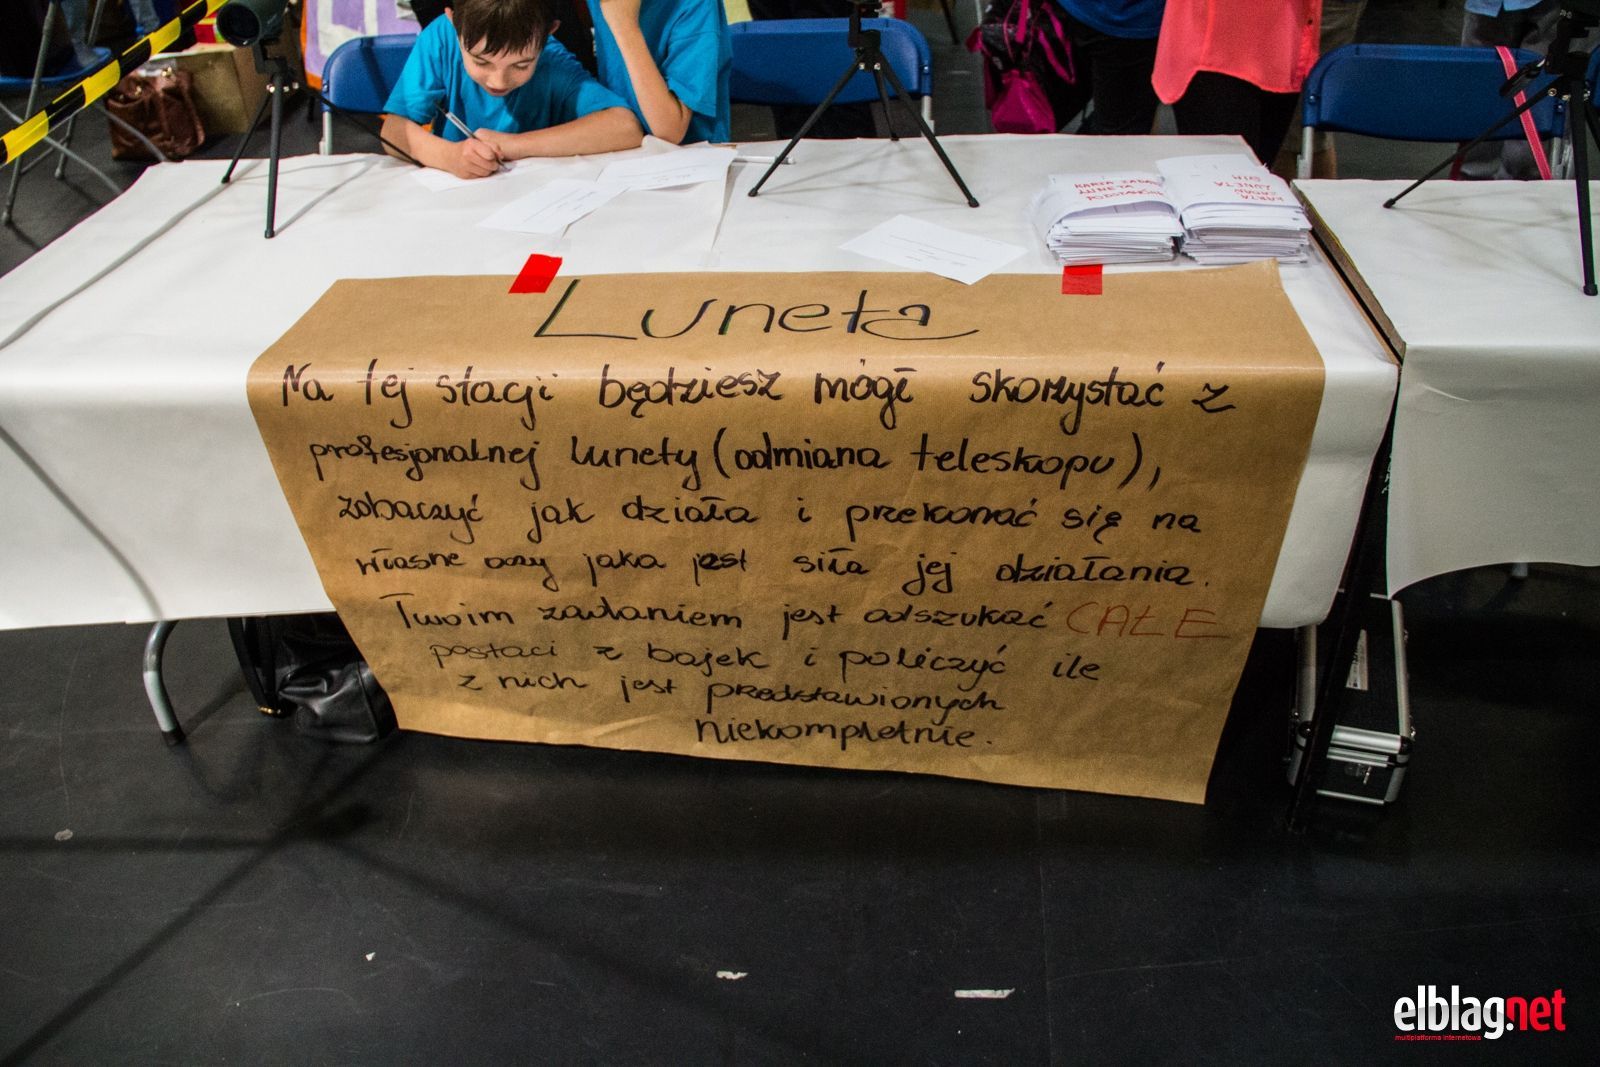 KARTA ZADAŃ
LUNETA
PODSTAWÓW
KARTA
ZADAŃ
LUNETA
GIM
Luneta
Na tej stacji będziesz mógł skorzystać z
profesjonalnej lunety (odmiana teleskopu),
zobaczyć jak działa i przekonać się na
własne oczy jaka jest siła jej działania.
Twoim zadaniem jest odszukać CAŁE
postaci z bajek i policzyć ile
z nich jest przedstawionych
niekompletnie.
elblag.net
multiplatforma internetowa